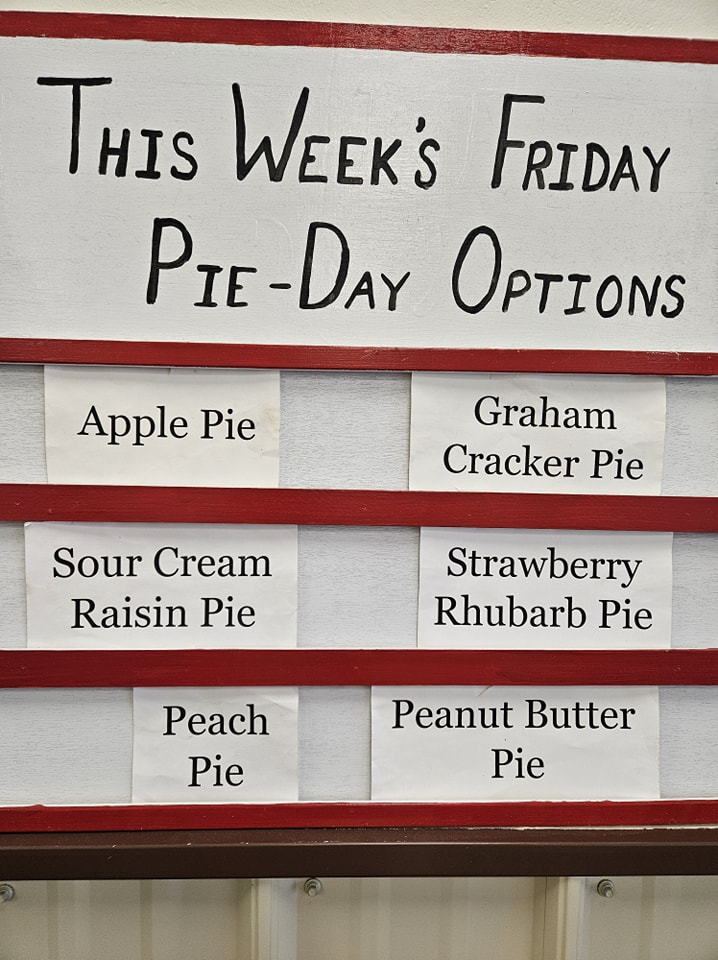 This Week's Friday
Pie-Day Options
Apple Pie
Graham
Cracker Pie
Sour Cream
Raisin Pie
Strawberry
Rhubarb Pie
Peach
Pie
Peanut Butter
Pie